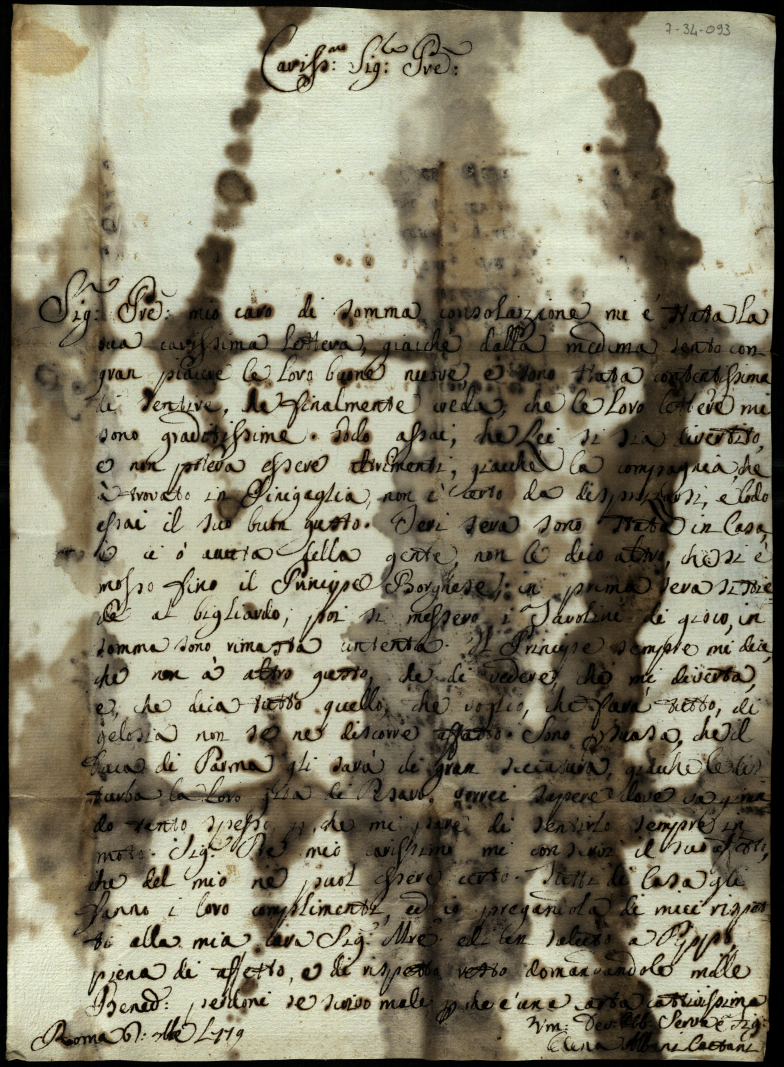 7-34-093
Cariss:mo Sig:re Pre:
Sig: Pre: mio caro di somma consolazione mi è stata la
sua carissima lettera, giachè dalla medema sento con
gran piacere le loro buone nuove, e sono stata contentissima
di sentire, che finalmente creda, che le loro lettere mi
sono graditissime. Lodo assai, che Lei si sia divertito,
e non poteva essere altrimenti, giacchè la compagnia, che
à trovato in Sinigaglia, non è certo da disprezzarsi, e lodo
assai il suo buon gusto. Jeri sera sono stata in Casa,
e ci ò avuta della gente, non le dico altro, che si è
mosso fino il Principe Borghese; in prima sera si
al bigliardo, poi si messero i Tavolini di gioco, in
somma sono rimasta contenta. Il Principe sempre mi dice,
che non à altro gusto, che di vedere, che mi diverta,
e, che dica tutto quello, che voglio, che farà tutto, di
gelosia non se ne discorre affatto. Sono che il
Duca di Parma gli sarà di gran seccatura, giachè le dis
turba la loro gita di Pesaro. vorrei sapere dove va giran
do tanto spesso, che mi pare di sentirlo sempre in
moto. Sig: Pre mio carissimo mi conservi il suo affetto,
che del mio ne puol essere certo. Tutti di Casa gli
fanno i loro complimenti, ed io pregandola di miei rispet
ti alla mia cara Sig:ra Mre ed un saluto a Pippo,
piena di affetto, e di rispetto resto domandandole mille
Bened: perdoni se scrivo male, che è una carta cattivissima
Roma
Um: Dev: Obb: Serva e Fig:
Elena Albani Cattani